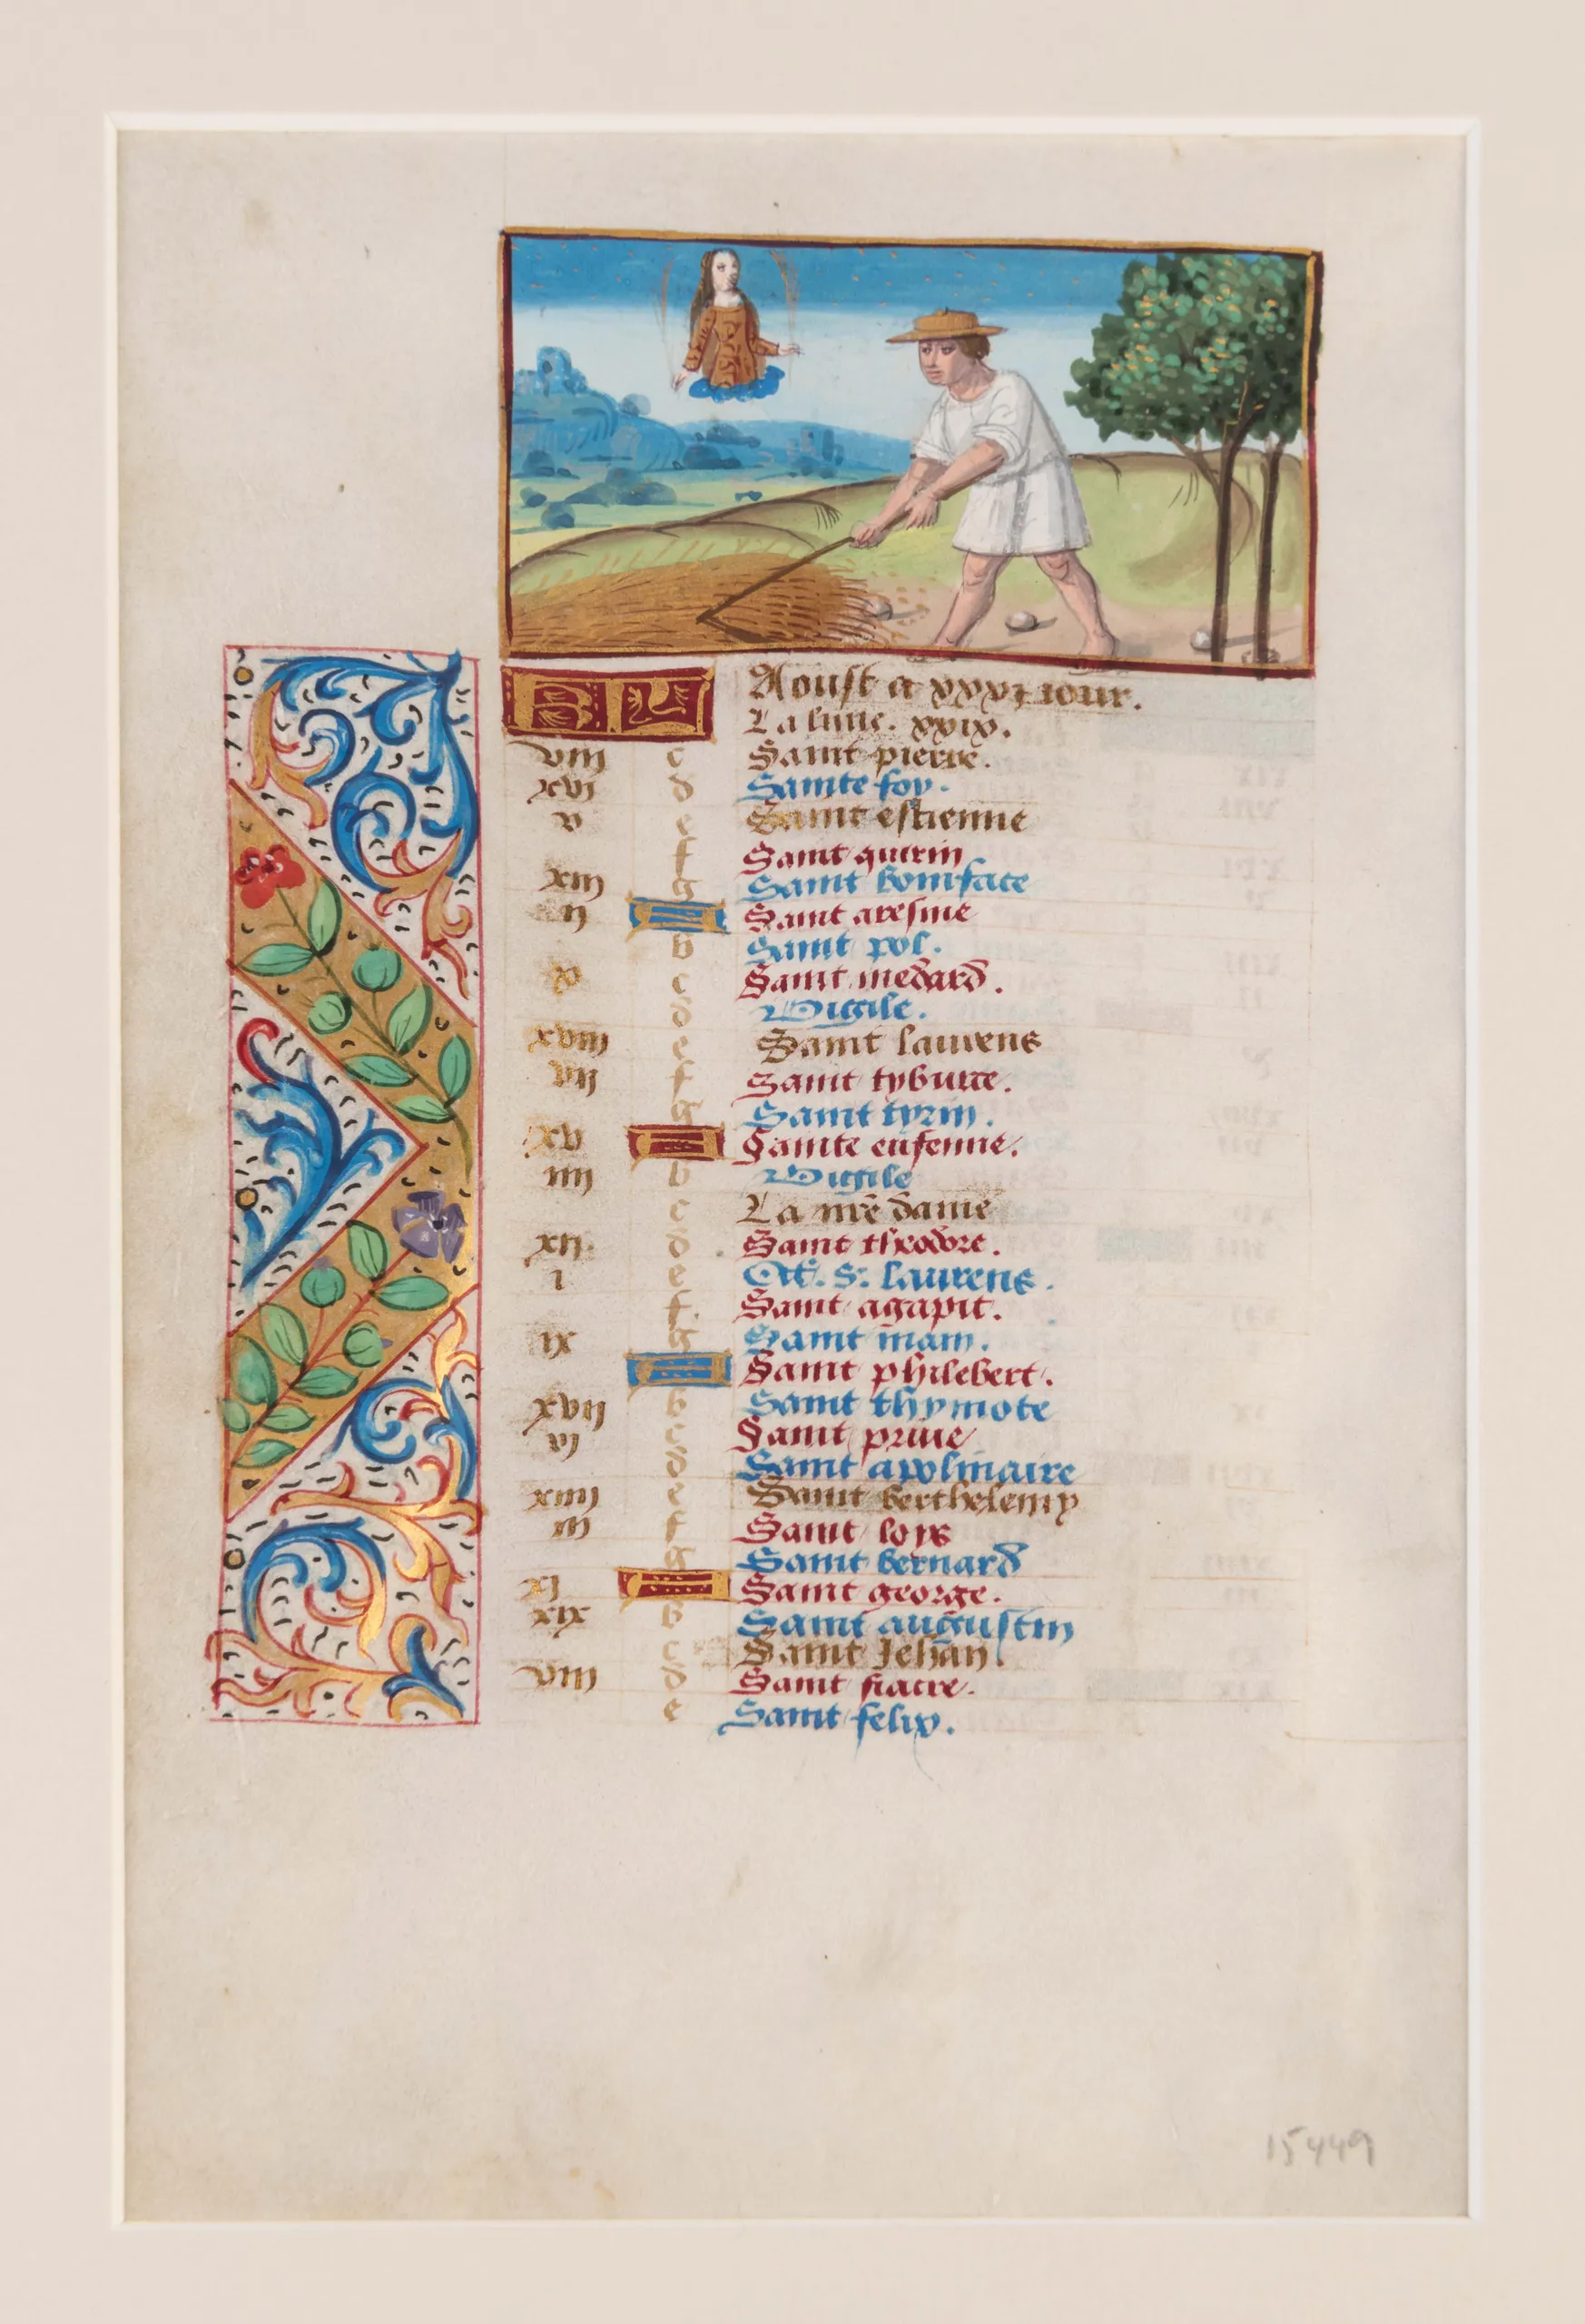 KL Aoust a xxxi iour.
La lune. xxix.
viii c Saint pierre.
xvi d Sainte foy.
v e Saint estienne
f Saint quirin
xiii g Saint boniface
ii A Saint aresme
b Saint pol.
x c Saint medard.
d Vigile.
xviii e Saint laurens
vii f Saint tyburce.
g Saint tyrin.
xv A Sainte eufenne.
iiii b Vigile
c La nr̄e dame
xii. d Saint theodore.
i e Oct. S. laurens.
f. Saint agapit.
ix g Saint mam.
A Saint philebert.
xvii b Saint thymote
vi c Saint priue
d Saint apolinaire
xiiii e Saint berthelemy
iii f Saint loys
g Saint bernard
xi A Saint george.
xix b Saint augustin
c Saint Jehan
viii d Saint fiacre.
e Saint felix.
15449